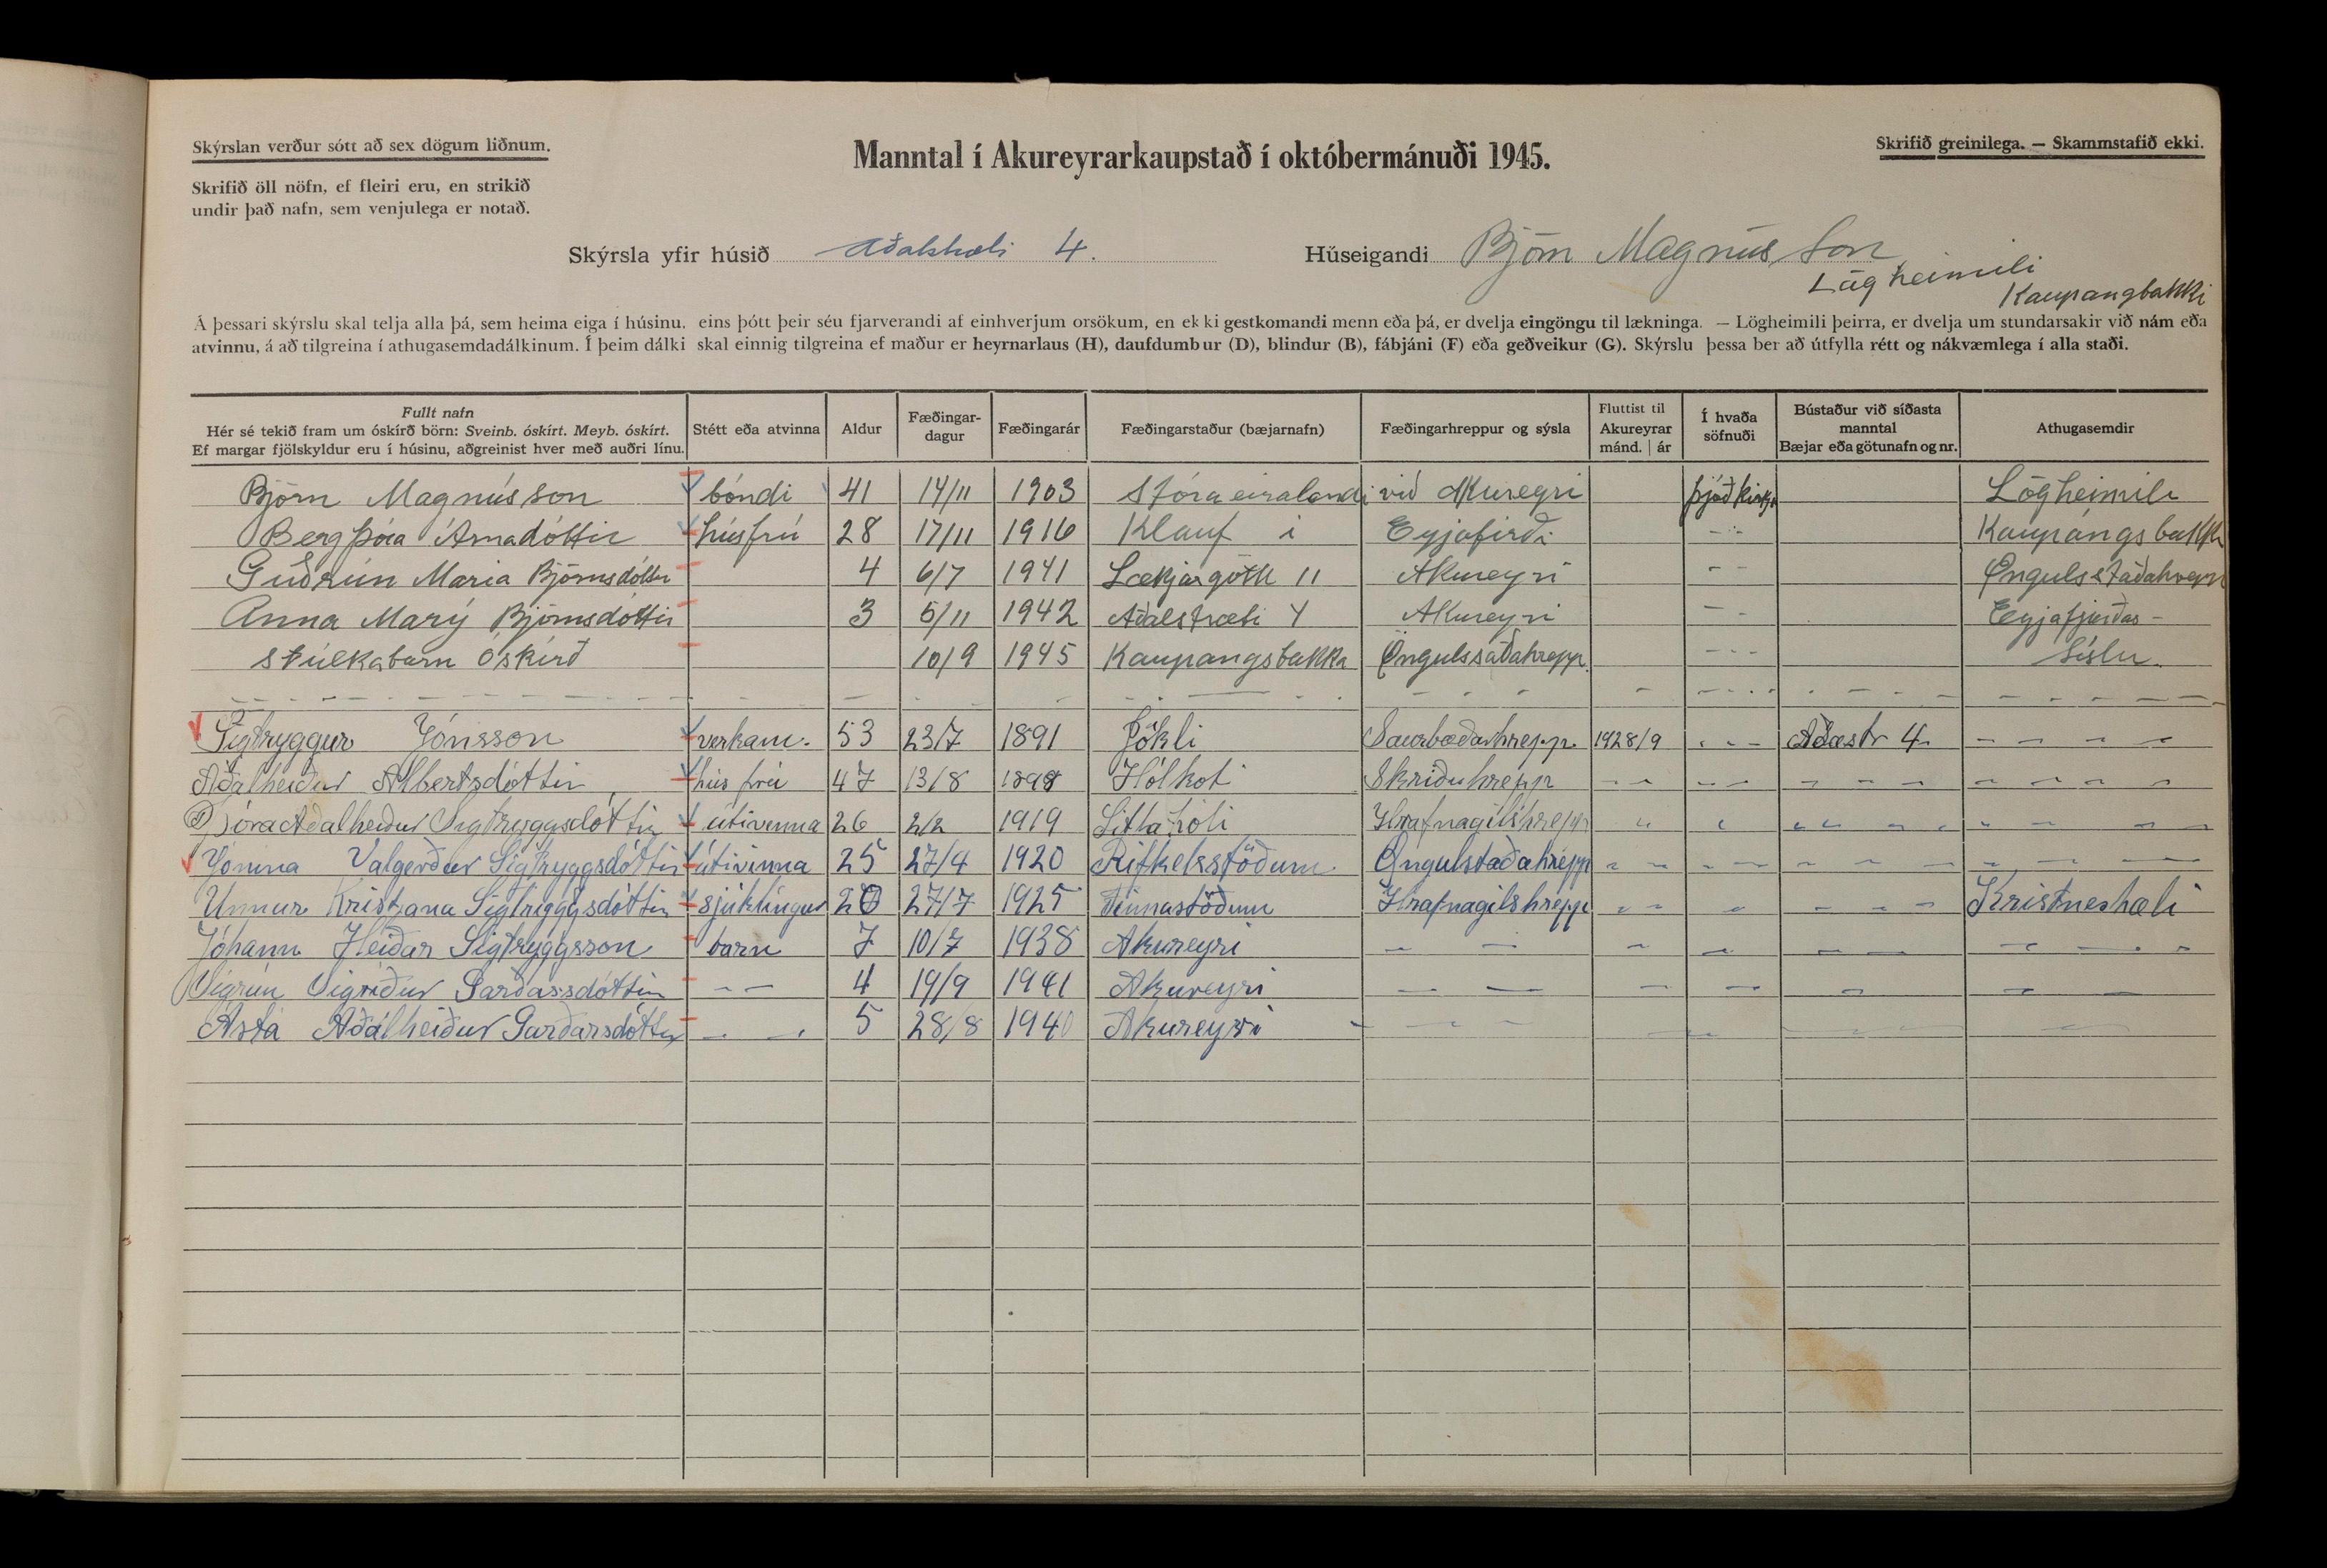 Skýrslan verður sótt að sex dögum liðnum.
Manntal í Akureyrarkaupstað í októbermánuði 1945.
Skrifið greinilega. — Skammstafið ekki.
Skrifið öll nöfn, ef fleiri eru, en strikið
undir það nafn, sem venjulega er notað.
Skýrsla yfir húsið 4. Húseigandi Björn Magnússon
Lögheimili
Kaupangbakki
Á þessari skýrslu skal telja alla þá, sem heima eiga í húsinu, eins þótt þeir séu fjarverandi af einhverjum orsökum, en ekki gestkomandi menn eða þá, er dvelja eingöngu til lækninga. — Lögheimili þeirra, er dvelja um stundarsakir við nám eða
atvinnu, á að tilgreina í athugasemdadálkinum. Í þeim dálki skal einnig tilgreina ef maður er heyrnarlaus (H), daufdumbur (D), blindur (B), fábjáni (F) eða geðveikur (G). Skýrslu þessa ber að útfylla rétt og nákvæmlega í alla staði.
Fullt nafn
Hér sé tekið fram um óskírð börn: Sveinb. óskírt. Meyb. óskírt.
Ef margar fjölskyldur eru í húsinu, aðgreinist hver með auðri línu.
Stétt eða atvinna
Aldur
Fæðingar-
dagur
Fæðingarár
Fæðingarstaður (bæjarnafn)
Fæðingarhreppur og sýsla
Fluttist til
Akureyrar
mánd. | ár
Í hvaða
söfnuði
Bústaður við síðasta
manntal
Bæjar eða götunafn og nr.
Athugasemdir
Björn Magnússon bóndi 41 14/11 1903 Stóra eiralandi við Akureyri þjóðkirkj Lögheimili
Bergþóra Árnadóttir húsfrú 28 17/11 1916 Klauf í Eyjafirði - - Kaupángsbakki
Guðrún Maria Björnsdóttir 4 6/7 1941 Lækjargötu 11 Akureyri - - Öngulsstaðahrepp
Anna Marý Björnsdóttir 3 5/11 1942 Aðalstræti 4 Akureyri - - Eyjafjarðar-
Stúlkabarn Óskírð 10/9 1945 Kaupangsbakka Öngulssaðahrepp - - - Sýslu
Sigtryggur Jónsson verkam. 53 23/7 1891 Jökli Saurbæðarhrepp. 1928/9 - - - Aðalstr 4 - - - -
Aðalheiður Albertsdóttir húsfrú 47 13/8 1898 Hólkoti Skriðuhrepp - - - - - - - - - - -
Þóra Aðalheiður Sigtryggsdóttir útivinna 26 2/2 1919 Litlahóli Hrafnagilshrepp
Jónína Valgerður Sigtryggsdóttir útivinna 25 27/4 1920 Rifkelsstöðum Öngulstaðahrepp - - - - - - - - - -
Unnur Kristjana Sigtryggsdóttir sjúklingur 20 27/7 1925 Finnastöðum Hrafnagilshrepp - - - - - - Kristneshæli
Jóhann Heiðar Sigtryggsson barn 7 10/7 1938 Akureyri - - - - - - - - -
Sigrún Sigríður Garðarsdóttir - - 4 19/9 1941 Akureyri - - - - - - -
Ásta Aðalheiður Garðarsdóttir - - 5 28/8 1940 Akureyri - - - - - - -